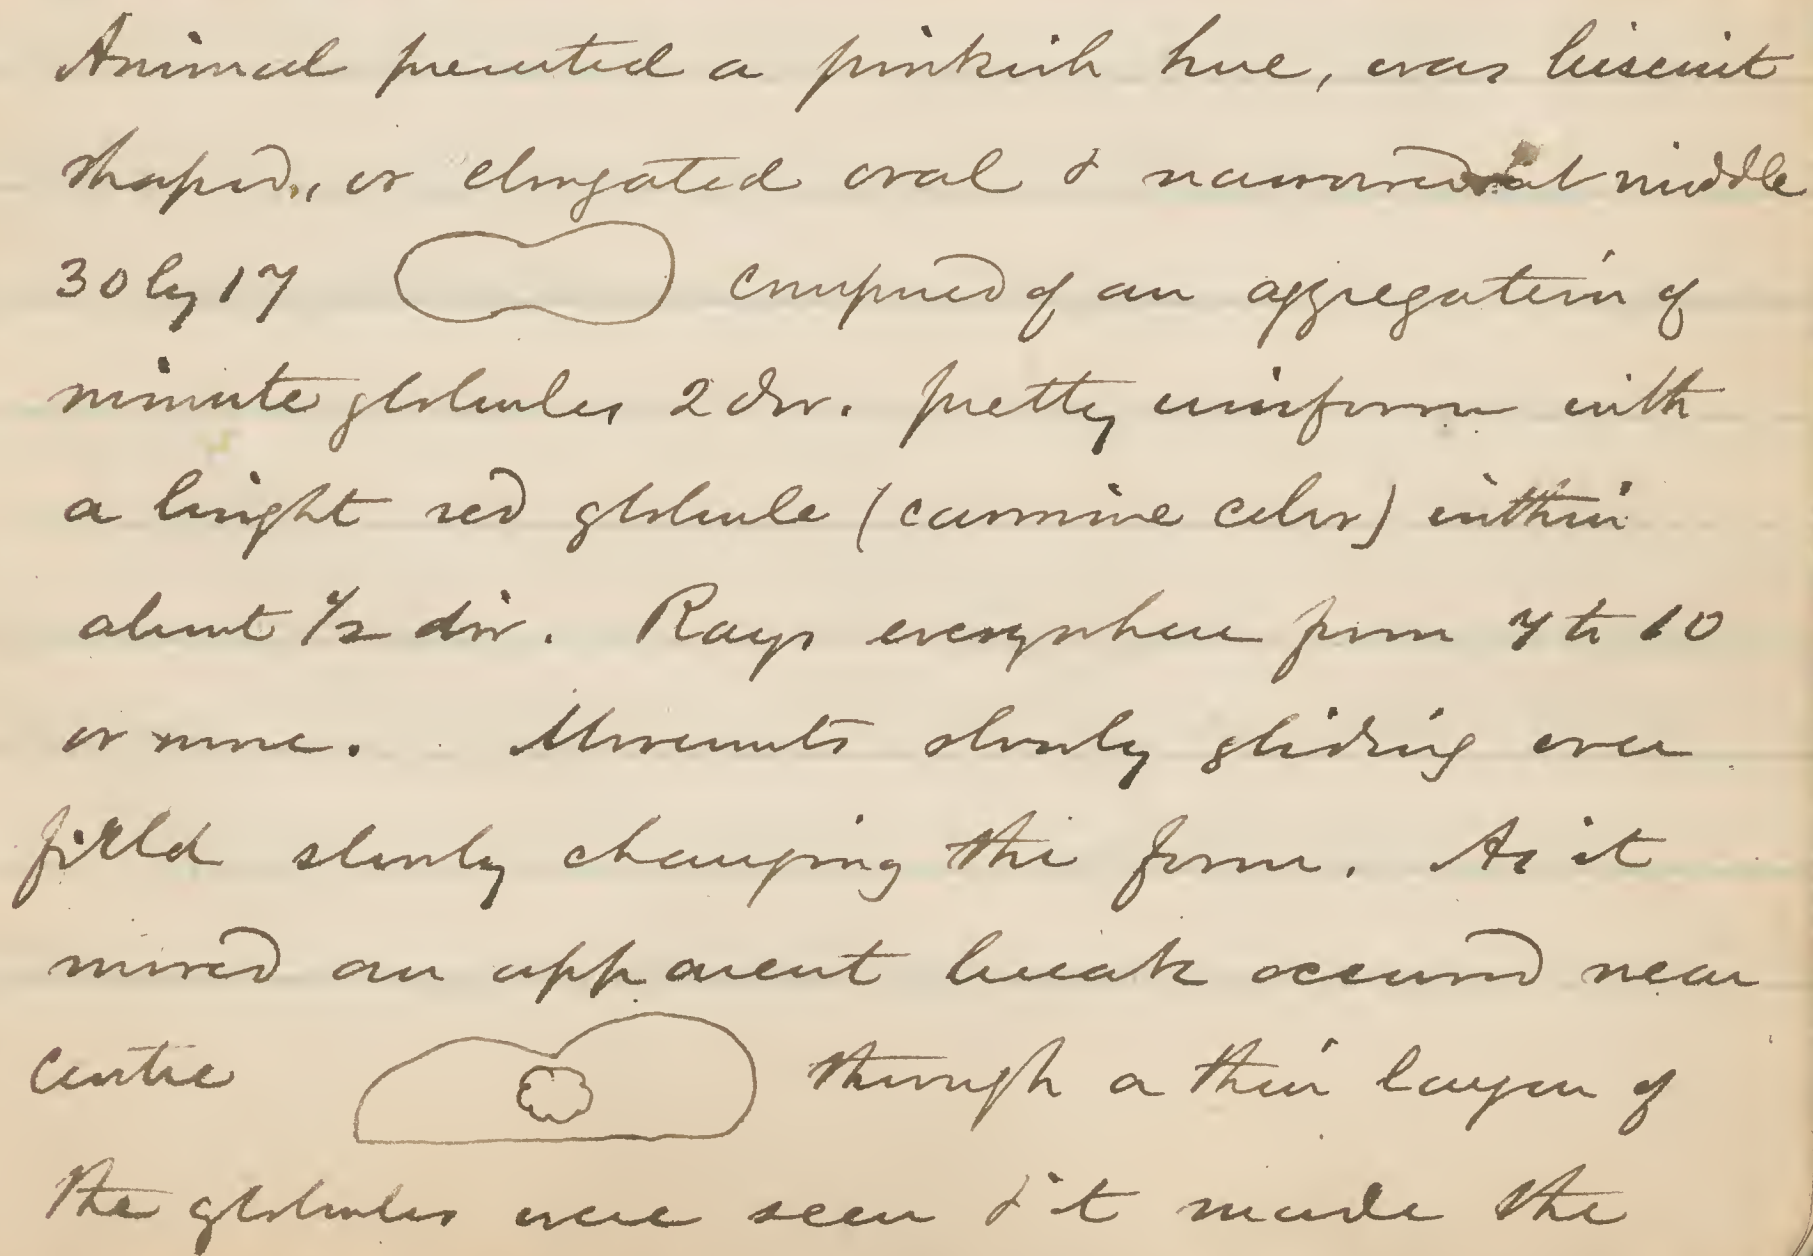 Animal presented a pinkish hue, was biscuit
shaped, or elongated oval & narrowed at middle
30 by 17 composed of an aggregation of
minute globules 2 div. pretty uniform with
a bright red globule (carmine color) within
about 1/2 div. Rays everywhere from 7 to 10
or more. Movements slowly gliding over
field slowly changing the form. As it
moved an apparent break occurred near
centre though a thin layer of
the globules were seen & it made the